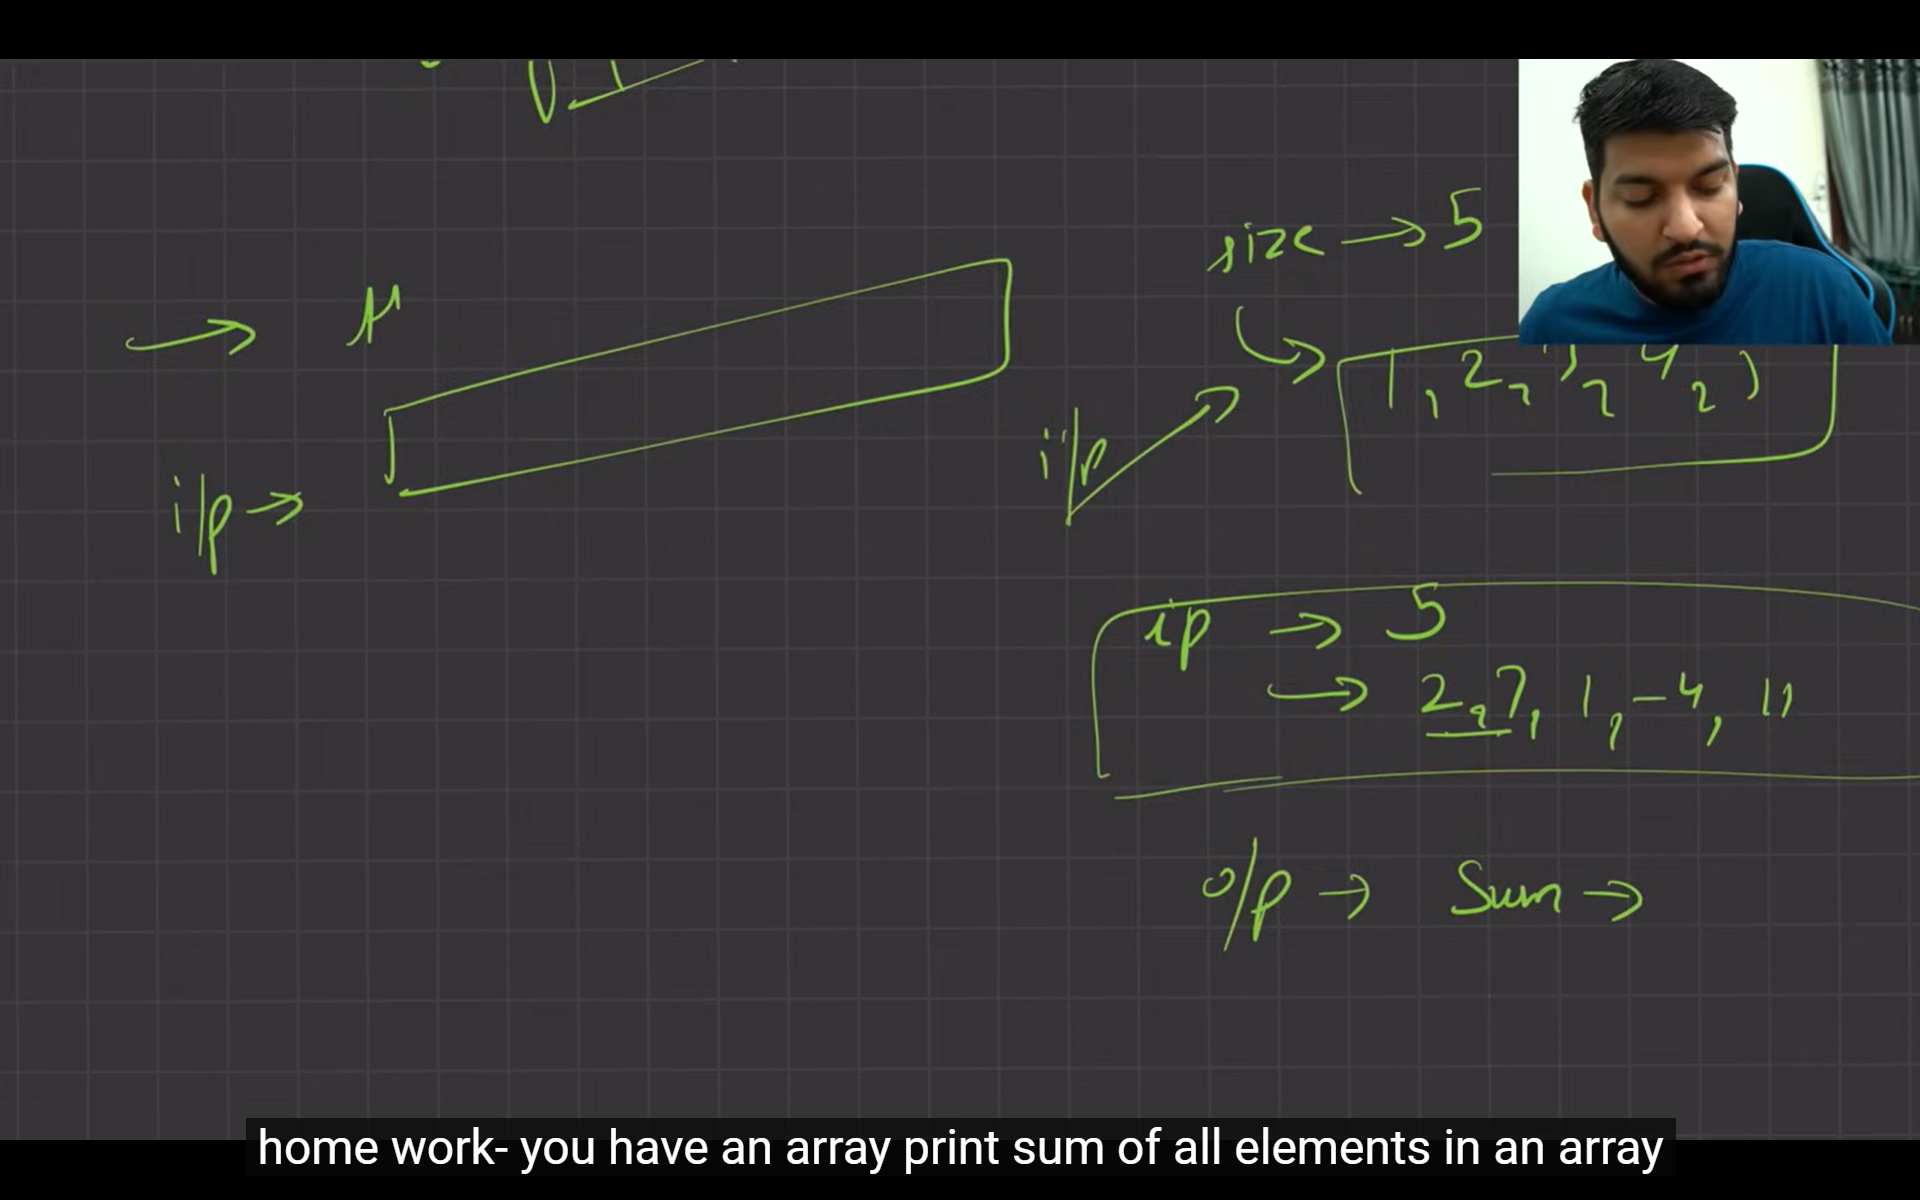 size → 5
→ 1, 2, 3, 4, 5
i/p
i/p →
ip → 5
→ 2, 7, 1, -4, 11
o/p → Sum →
home work- you have an array print sum of all elements in an array